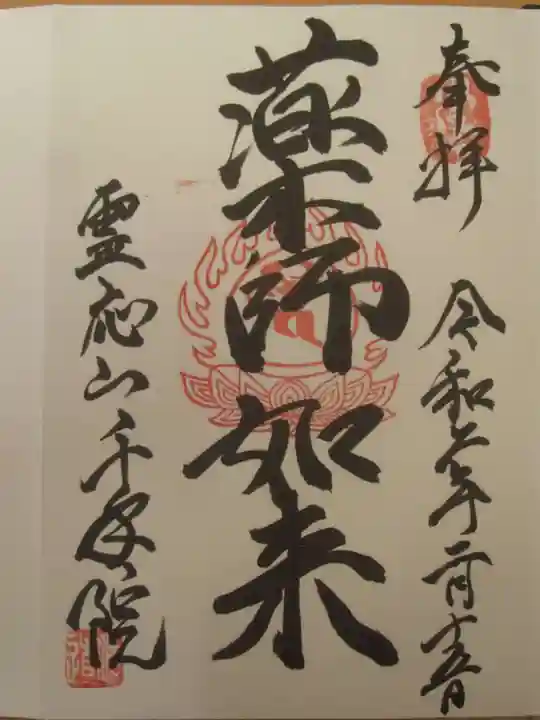 奉拝 令和六年二月十五日
薬師如来
霊応山千手院